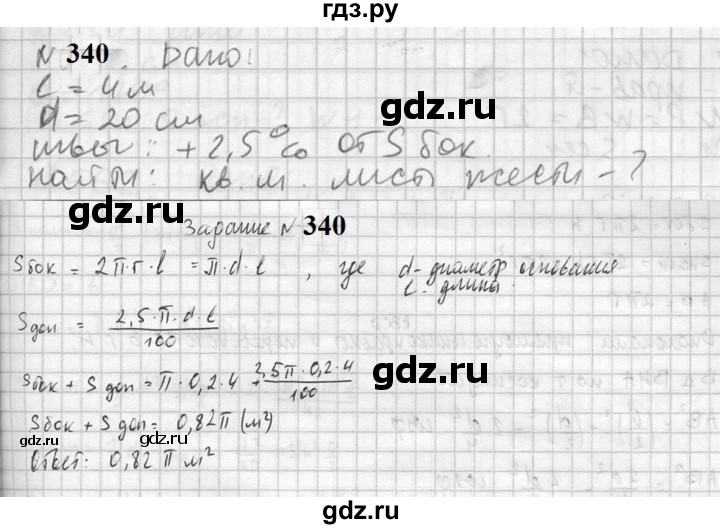 гдз.ру
№ 340. Дано:
l = 4 м
d = 20 см
швы: + 2,5 % от S бок.
найти: кв. м. листы жести - ?
Задание № 340
S бок = 2π·r·l = π·d·l , где d - диаметр основания
l - длина.
S доп = 2,5·π·d·l / 100
S бок + S доп = π·0,2·4 + 2,5π·0,2·4 / 100
S бок + S доп = 0,82π (м²)
Ответ: 0,82 π м²
гдз.рф